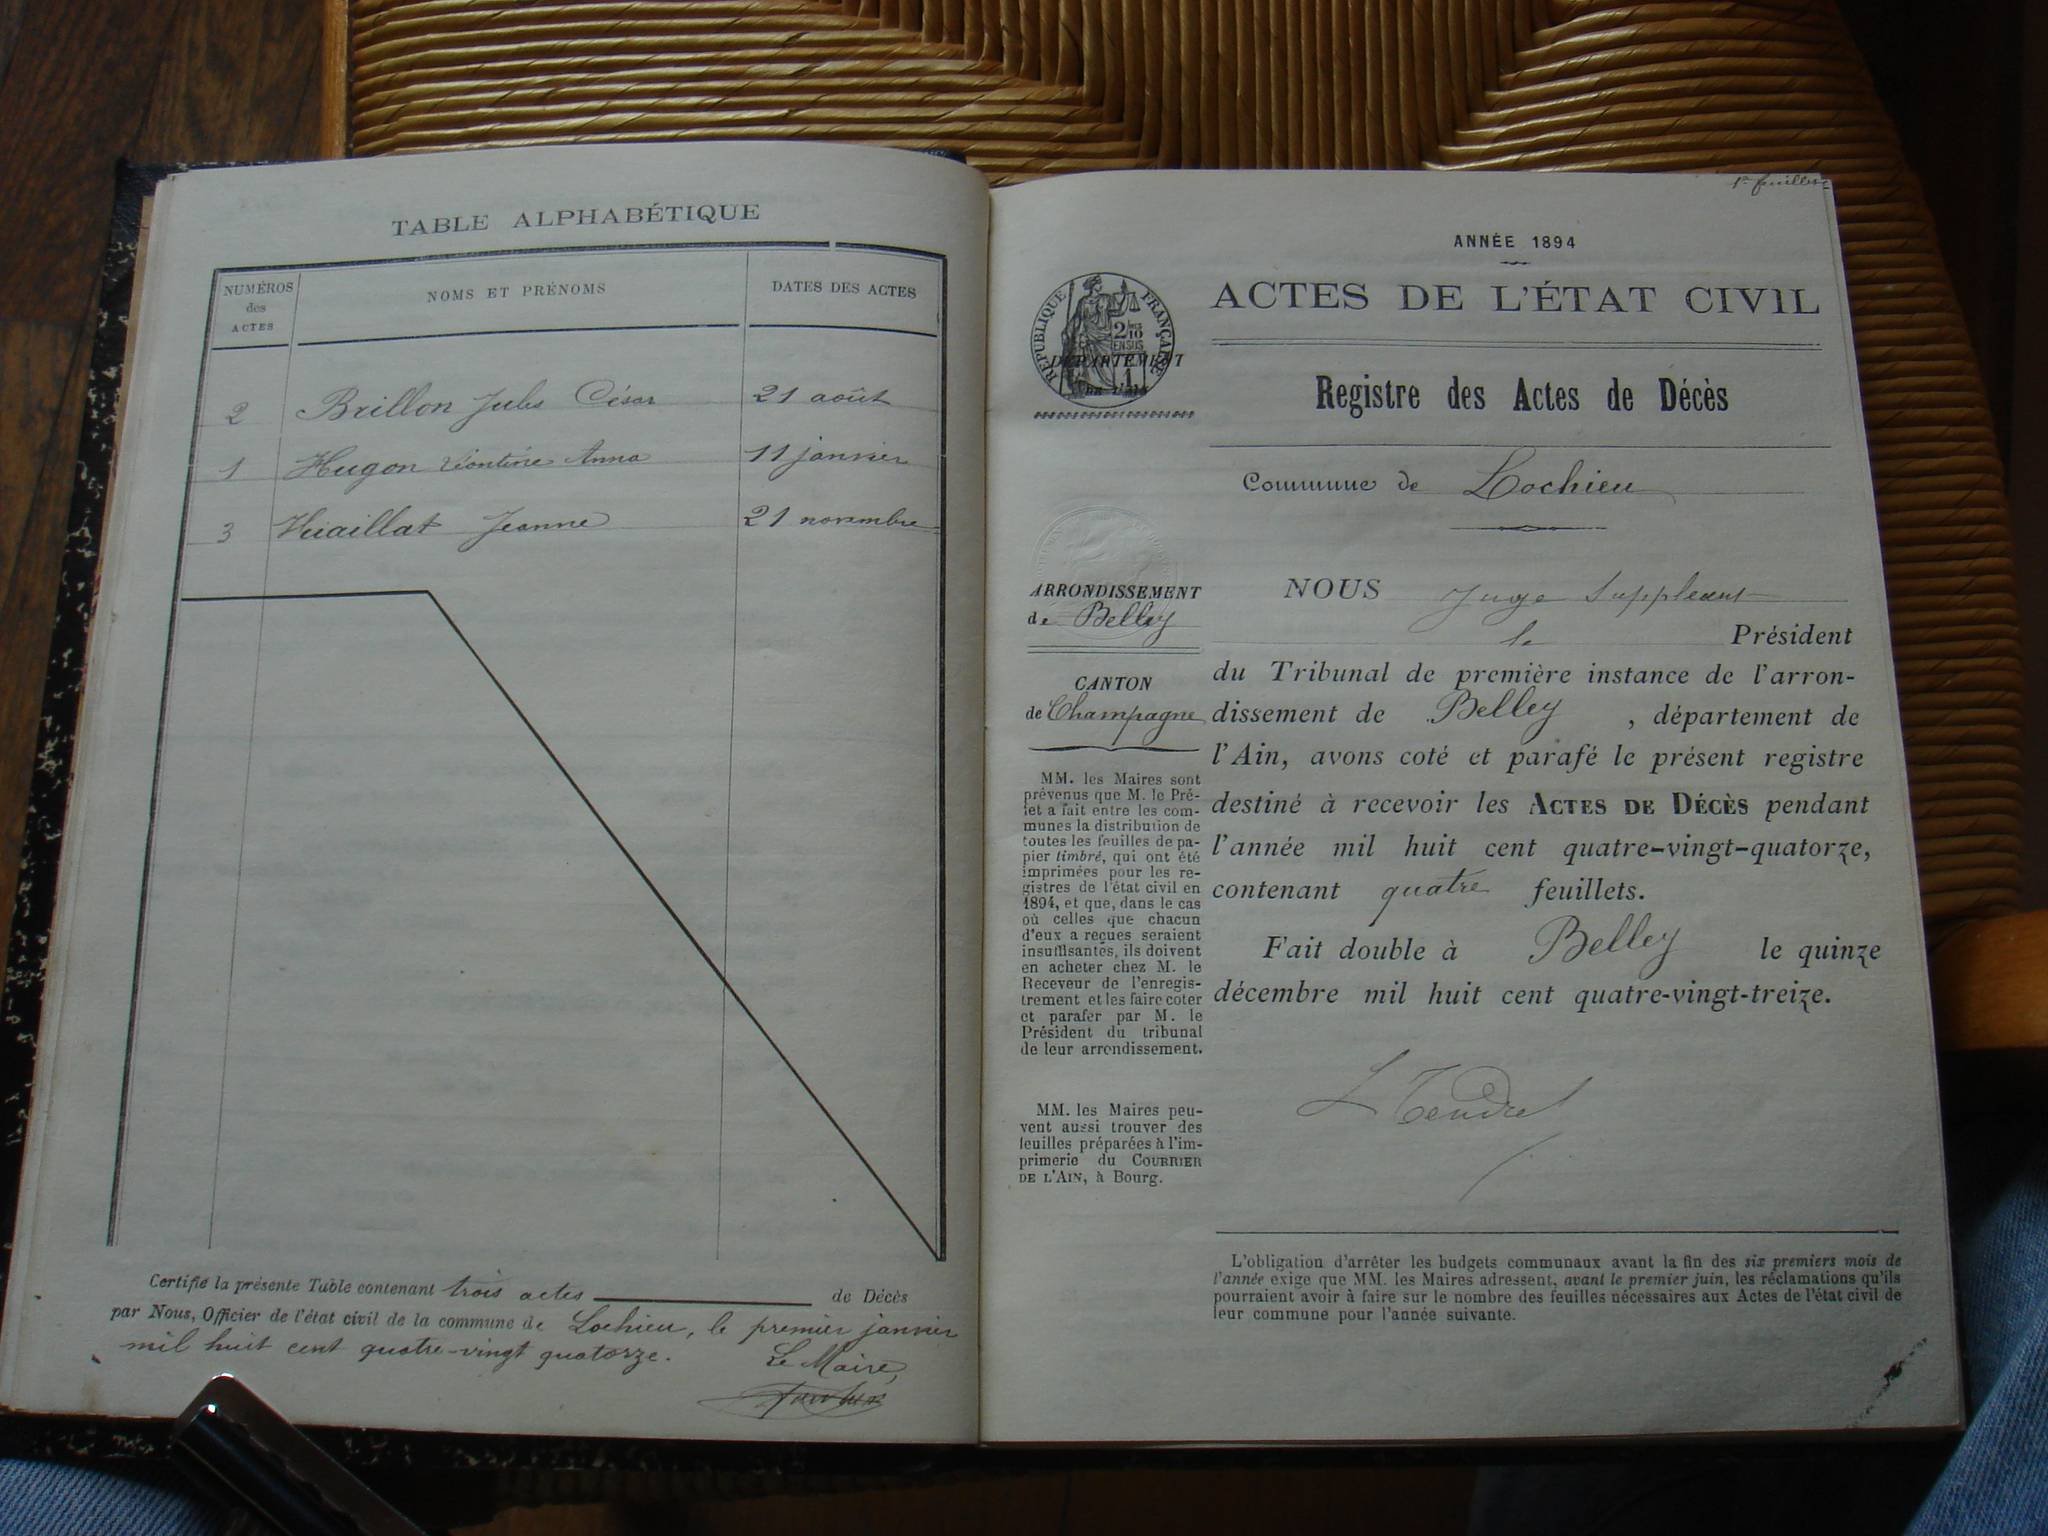 TABLE ALPHABÉTIQUE
NUMÉROS
des
ACTES
NOMS ET PRÉNOMS
DATES DES ACTES
2 Brillon Jules César 21 août
1 Hugon Léontine Anna 11 janvier
3 Vuaillat Jeanne 21 novembre
Certifié la présente Table contenant trois actes de Décès
par Nous, Officier de l'état civil de la commune de Lochieu, le premier janvier
mil huit cent quatre-vingt quatorze. Le Maire,
1er feuillet
ANNÉE 1894
ACTES DE L'ÉTAT CIVIL
RÉPUBLIQUE FRANÇAISE
DÉPARTEMENT
Registre des Actes de Décès
Commune de Lochieu
ARRONDISSEMENT
de Belley
CANTON
de Champagne
MM. les Maires sont
prévenus que M. le Pré-
fet a fait entre les com-
munes la distribution de
toutes les feuilles de pa-
pier timbré, qui ont été
imprimées pour les re-
gistres de l'état civil en
1894, et que, dans le cas
où celles que chacun
d'eux a reçues seraient
insuffisantes, ils doivent
en acheter chez M. le
Receveur de l'enregis-
trement et les faire coter
et parafer par M. le
Président du tribunal
de leur arrondissement.
MM. les Maires peu-
vent aussi trouver des
feuilles préparées à l'im-
primerie du COURRIER
DE L'AIN, à Bourg.
NOUS Juge Suppléant
le Président
du Tribunal de première instance de l'arron-
dissement de Belley, département de
l'Ain, avons coté et parafé le présent registre
destiné à recevoir les ACTES DE DÉCÈS pendant
l'année mil huit cent quatre-vingt-quatorze,
contenant quatre feuillets.
Fait double à Belley le quinze
décembre mil huit cent quatre-vingt-treize.
L'obligation d'arrêter les budgets communaux avant la fin des six premiers mois de
l'année exige que MM. les Maires adressent, avant le premier juin, les réclamations qu'ils
pourraient avoir à faire sur le nombre des feuilles nécessaires aux Actes de l'état civil de
leur commune pour l'année suivante.